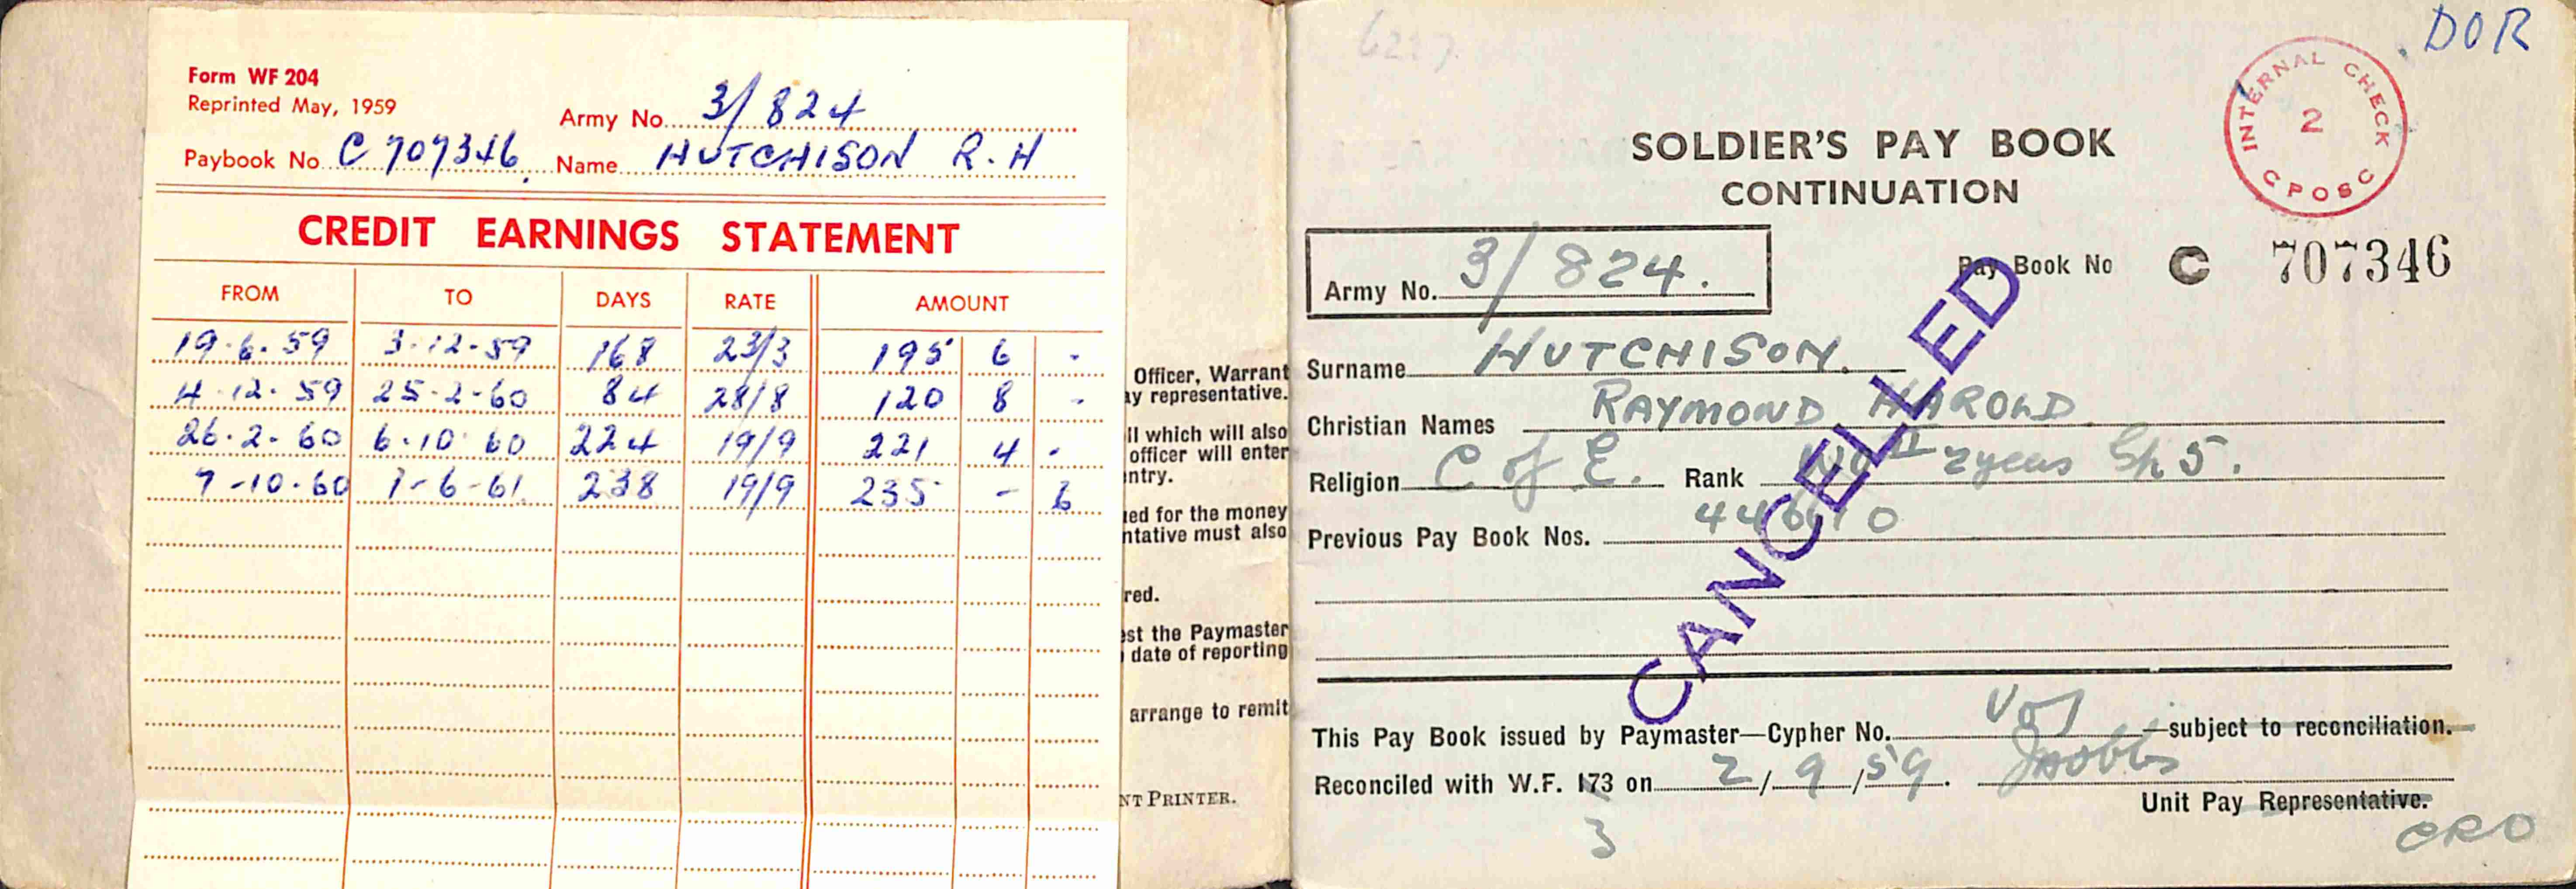 Form WF 204
Reprinted May, 1959
Army No. 3/824
Paybook No. C 707346. Name HUTCHISON R.H
CREDIT EARNINGS STATEMENT
FROM TO DAYS RATE AMOUNT
19.6.59 3.12.59 168 23/3 195 6 -
4.12.59 25.2.60 84 28/8 120 8 -
26.2.60 6.10.60 224 19/9 221 4 -
7-10-60 1-6-61 238 19/9 235 - 6
Officer, Warrant
ay representative.
ll which will also
officer will enter
ntry.
ed for the money
ntative must also
red.
est the Paymaster
date of reporting
arrange to remit
NT PRINTER.
6227
DOR
INTERNAL CHECK
2
CPOSC
SOLDIER'S PAY BOOK
CONTINUATION
Army No. 3/824.
Pay Book No C 707346
Surname HUTCHISON.
Christian Names RAYMOND HAROLD
Religion C of E. Rank WO II 2 years Gp 5.
Previous Pay Book Nos. 446610
CANCELLED
This Pay Book issued by Paymaster—Cypher No. subject to reconciliation.
Reconciled with W.F. 173 on 2/9/59.
3
Unit Pay Representative.
CRO